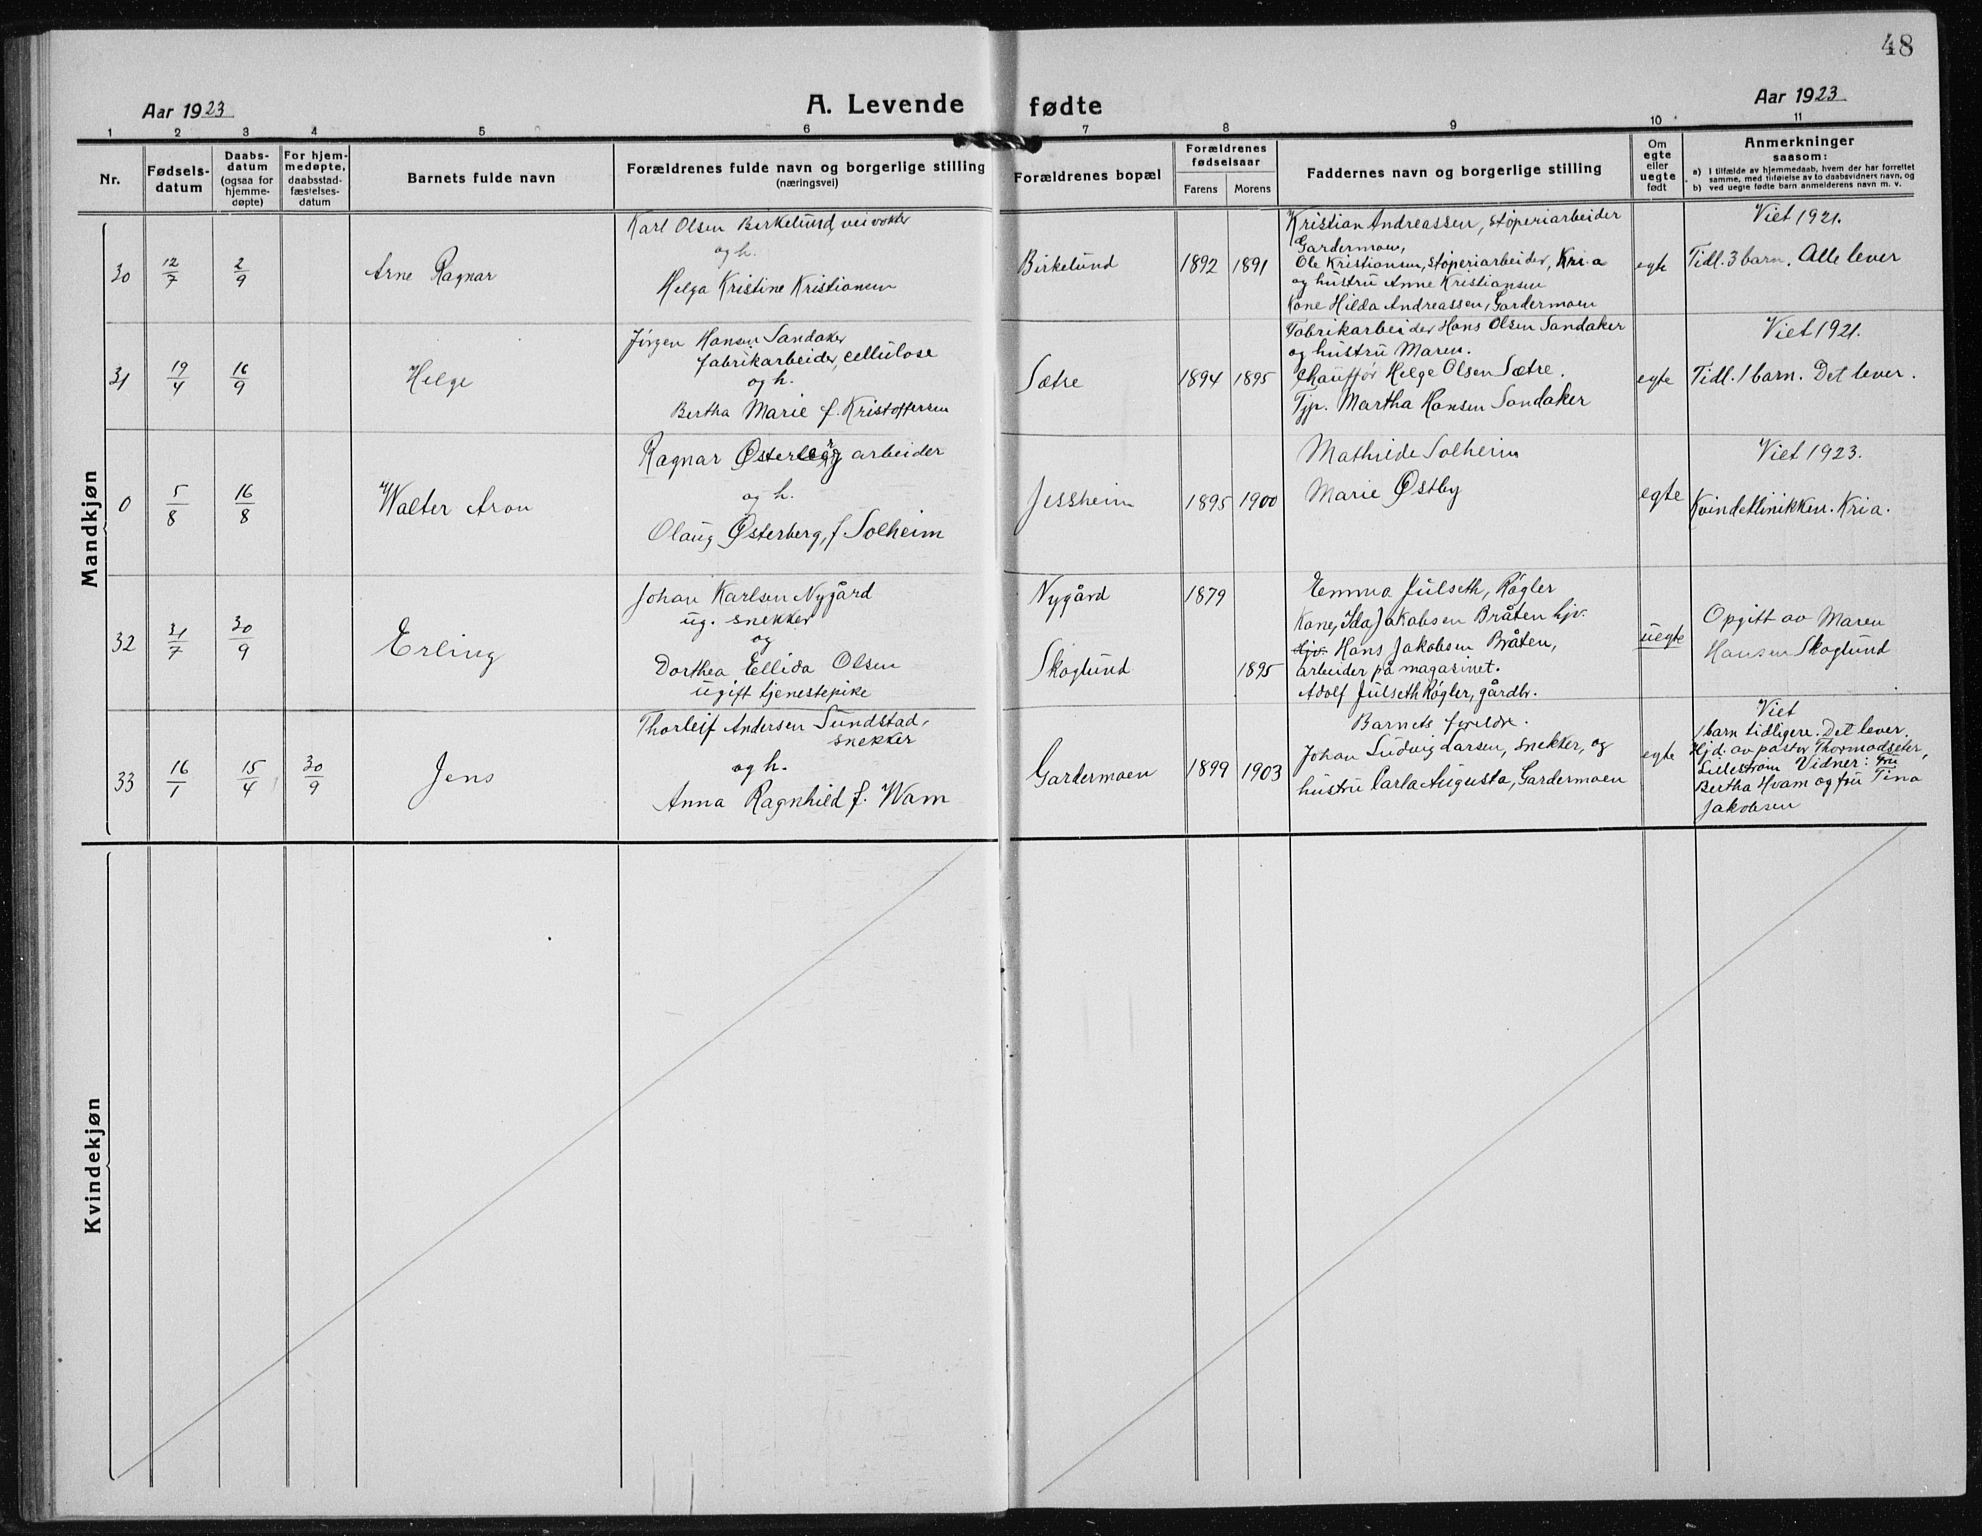 48
Aar 1923
A. Levende fødte
Aar 1923
1 2 3 4 5 6 7 8 9 10 11
Nr.
Fødsels-
datum
Daabs-
datum
(ogsaa for
hjemme-
døpte)
For hjem-
medøpte,
daabsstad-
fæstelses-
datum
Barnets fulde navn
Forældrenes fulde navn og borgerlige stilling
(næringsvei)
Forældrenes bopæl
Forældrenes
fødselsaar
Farens Morens
Faddernes navn og borgerlige stilling
Om
egte
eller
uegte
født
Anmerkninger
saasom:
a) I tilfælde av hjemmedaab, hvem der har forrettet
samme, med tilføielse av to daabsvidners navn, og
b) ved uegte fødte barn anmelderens navn m. v.
Mandkjøn
30
12/7
2/9
Arne Ragnar
Karl Olsen Birkelund, veivokter
og h.
Helga Kristine Kristiansen
Birkelund
1892 1891
Kristian Andreassen, støperiarbeider
Gardermoen,
Ole Kristiansen, støperiarbeider, Kri.a
og hustru Anne Kristiansen
Kone Hilda Andreassen, Gardermoen
egte
Viet 1921.
Tidl. 3 barn. Alle lever
31
19/4
16/9
Helge
Jørgen Hansen Sandaker
fabrikarbeider, cellulose
og h.
Bertha Marie f. Kristoffersen
Sætre
1894 1895
Fabrikarbeider Hans Olsen Sandaker
og hustru Maren.
Chauffør Helge Olsen Sætre.
Tjp. Martha Hansen Sandaker
egte
Viet 1921.
Tidl. 1 barn. Det lever.
0
5/8
16/8
Walter Aron
Ragnar Østerberg arbeider
og h.
Olaug Østerberg, f Solheim
Jessheim
1895 1900
Mathilde Solheim
Marie Østby
egte
Viet 1923.
Kvindeklinikken. Kria.
32
31/7
30/9
Erling
Johan Karlsen Nygård
ug. snekker
og
Dorthea Ellida Olsen
ugift tjenestepike
Nygård
Skoglund
1879
1895
Emma Julseth, Røgler
Kone Ida Jakobsen Bråten hjv.
hjv. Hans Jakobsen Bråten,
arbeider på magasinet.
Adolf Julseth Røgler, gårdbr.
uegte
Opgitt av Maren
Hansen Skoglund
33
16/1
15/4
30/9
Jens
Thorleif Andersen Sundstad,
snekker
og h.
Anna Ragnhild f. Wam
Gardermoen
1899 1903
Barnets foreldre.
Johan Ludvig Larsen, snekker, og
hustru Carla Augusta, Gardermoen
egte
Viet
1 barn tidligere. Det lever.
Hjd. av pastor Thormodsæter,
Lillestrøm Vidner: fru
Bertha Hvam og fru Tina
Jakobsen
Kvindekjøn